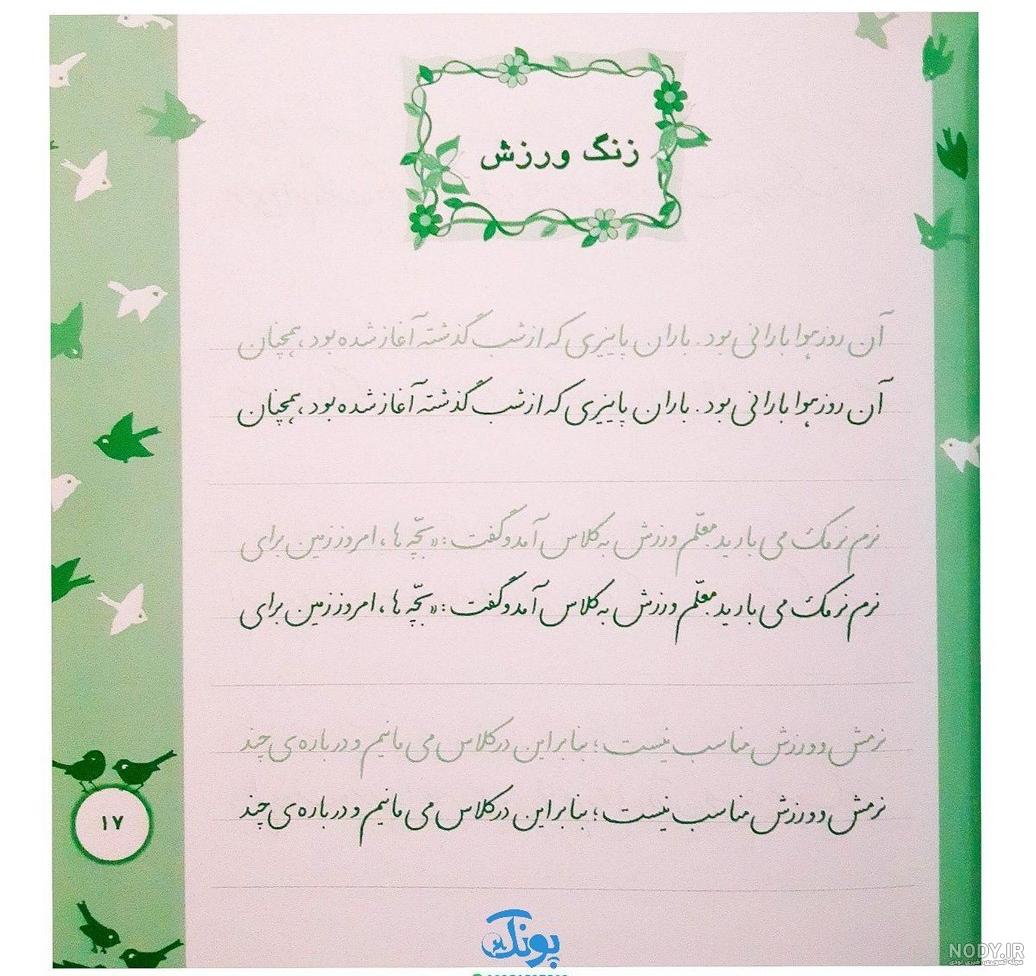 زنگ ورزش
آن روز هوا بارانی بود. باران پاییزی که از شب گذشته آغاز شده بود، همچنان
آن روز هوا بارانی بود. باران پاییزی که از شب گذشته آغاز شده بود، همچنان
نرم نرمک می بارید معلّم ورزش به کلاس آمد و گفت: «بچّه ها، امروز زمین برای
نرم نرمک می بارید معلّم ورزش به کلاس آمد و گفت: «بچّه ها، امروز زمین برای
نرمش و ورزش مناسب نیست؛ بنابراین در کلاس می مانیم و درباره ی چند
نرمش و ورزش مناسب نیست؛ بنابراین در کلاس می مانیم و درباره ی چند
۱۷
پونک
NODY.IR